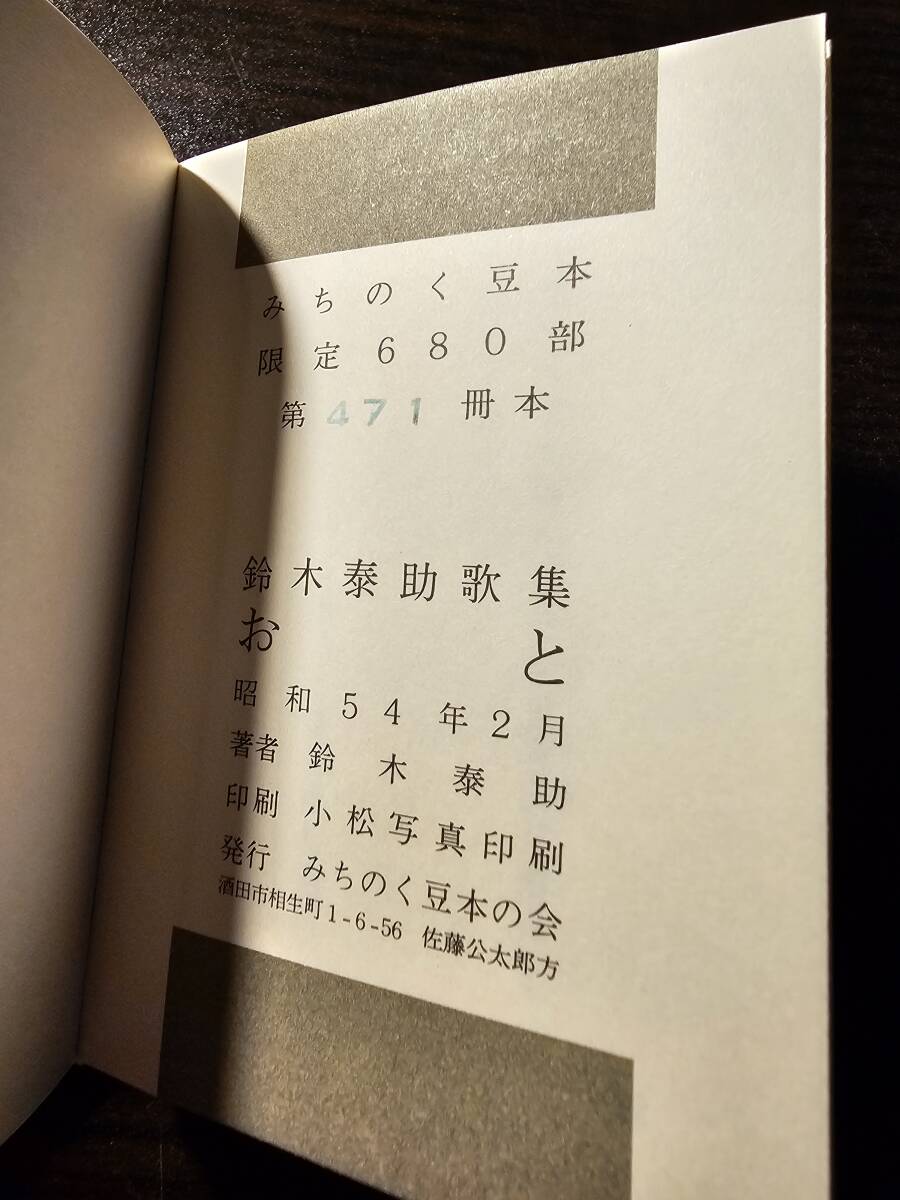 みちのく豆本
限定680部
第471冊本
鈴木泰助歌集
おと
昭和54年2月
著者 鈴木泰助
印刷 小松写真印刷
発行 みちのく豆本の会
酒田市相生町1-6-56 佐藤公太郎方